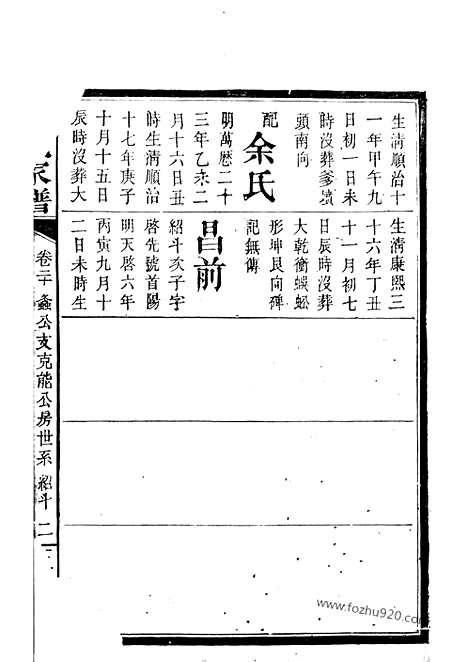 生清順治十
一年甲午九
日初一日未
時沒葬爹墳
頭南向
配余氏
明萬曆二十
三年乙未二
月十六日丑
時生清順治
十七年庚子
十月十五日
辰時沒葬大
生清康熙三
十六年丁丑
十一月初七
日辰時沒葬
大乾衝蜈蚣
形坤艮向碑
記無傳
昌前
紹斗次子字
啓先號首陽
明天啓六年
丙寅九月十
二日未時生
家譜
卷二十 螽公支克能公房世系 紹斗 二
www.fozhu920.com